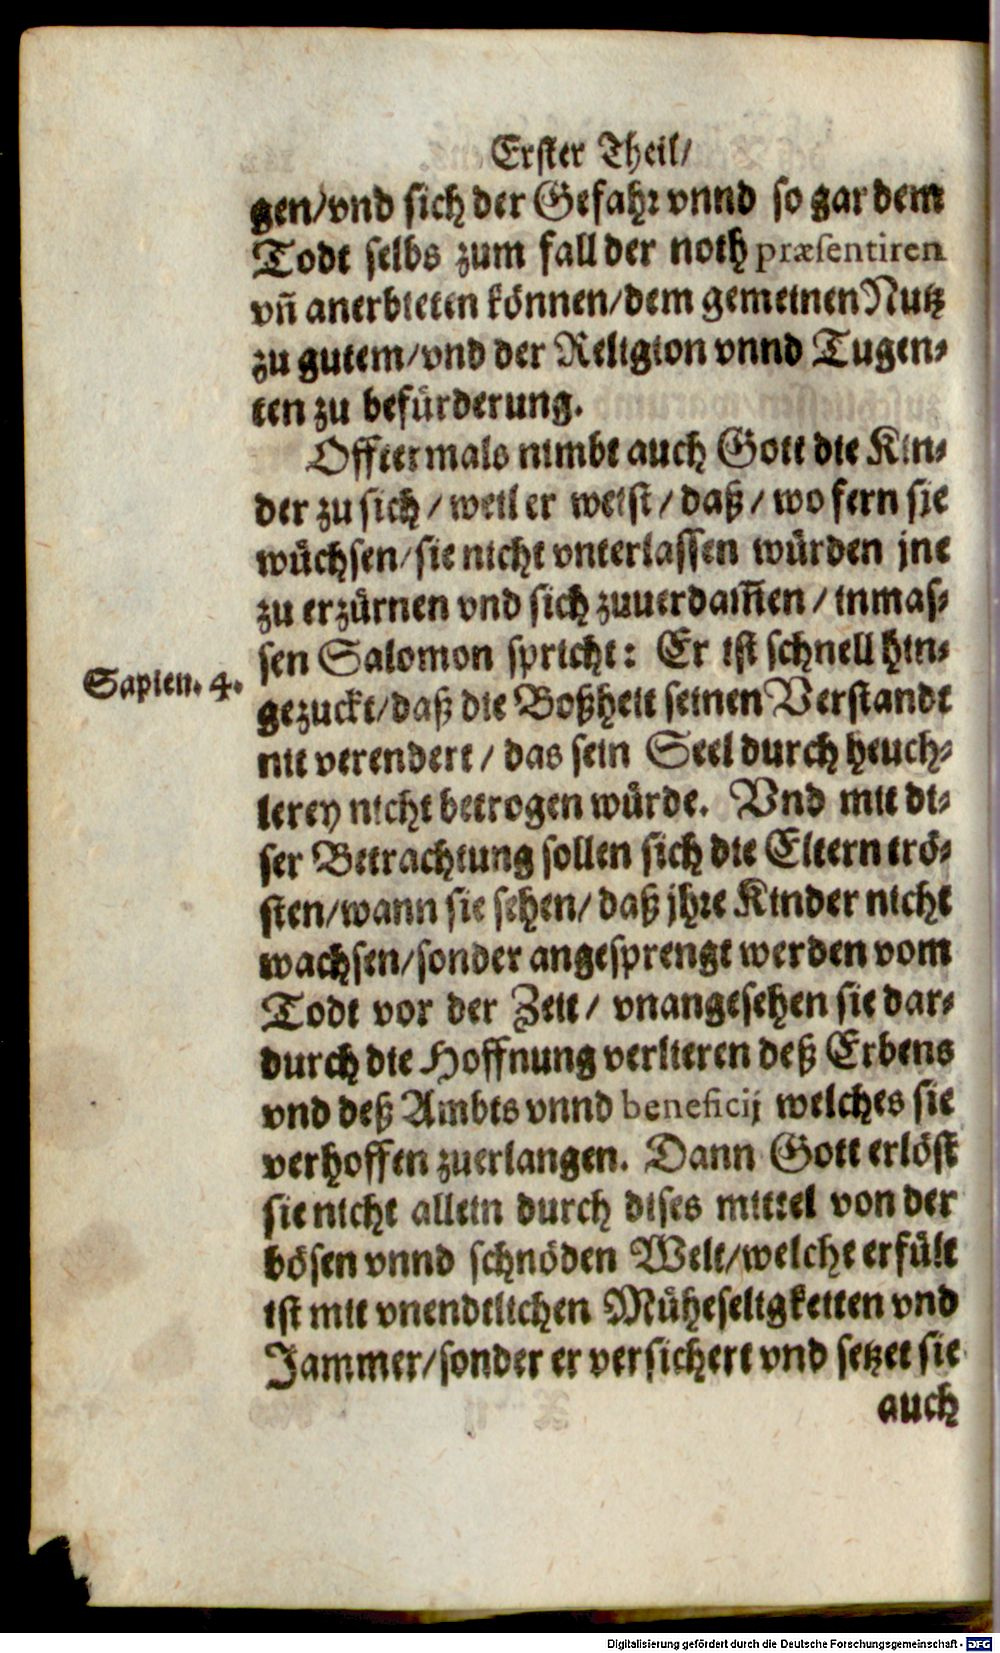 Erster Theil/
gen/vnd sich der Gefahr vnnd so gar dem
Todt selbs zum fall der noth præsentiren
vñ anerbieten können/dem gemeinen Nutz
zu gutem/vnd der Religion vnnd Tugen-
ten zu befürderung.
Offtermals nimbt auch Gott die Kin-
der zu sich / weil er weist / daß / wo fern sie
wüchsen/sie nicht vnterlassen würden jne
zu erzürnen vnd sich zuuerdam̃en / inmas-
sen Salomon spricht: Er ist schnell hin-
Sapien. 4.
gezuckt/daß die Boßheit seinen Verstandt
nit verendere / das sein Seel durch heuch-
lerey nicht betrogen würde. Vnd mit di-
ser Betrachtung sollen sich die Eltern trö-
sten/wann sie sehen/daß jhre Kinder nicht
wachsen/sonder angesprengt werden vom
Todt vor der Zeit / vnangesehen sie dar-
durch die Hoffnung verlieren deß Erbens
vnd deß Ambts vnnd beneficij welches sie
verhoffen zuerlangen. Dann Gott erlöst
sie nicht allein durch dises mittel von der
bösen vnnd schnöden Welt/welche erfült
ist mit vnendtlichen Müheseligkeiten vnd
Jammer/sonder er versichert vnd setzet sie
auch
Digitalisierung gefördert durch die Deutsche Forschungsgemeinschaft - DFG